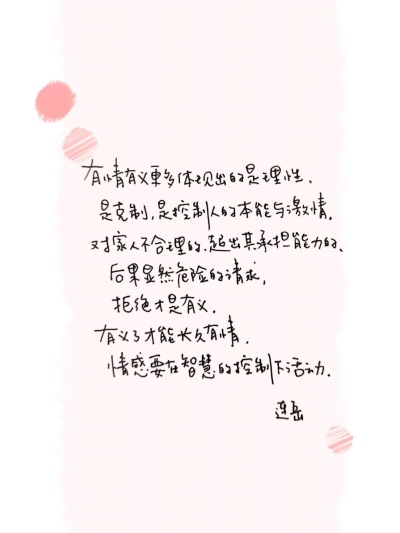 有情有义更多体现出的是理性、
是克制,是控制人的本能与激情。
对家人不合理的、超出其承担能力的、
后果显然危险的请求,
拒绝才是有义。
有义了才能长久有情。
情感要在智慧的控制下活动。
连岳